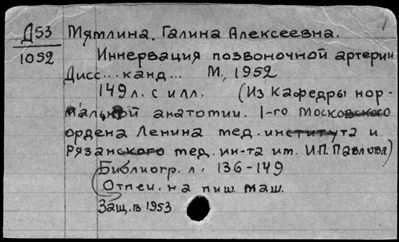 Д53 Тятлина, Галина Алексеевна. 1
1052 Иннервация позвоночной артерии
Дисс... канд... М., 1952
149 л. с илл. (Из кафедры нор-
мальной анатомии. 1-го Московского
ордена Ленина мед. института и
Рязанского мед. ин-та им. И.П. Павлова)
Библиогр. л. 136-149
(Отпеч. на пиш. маш.
Защ. в 1953